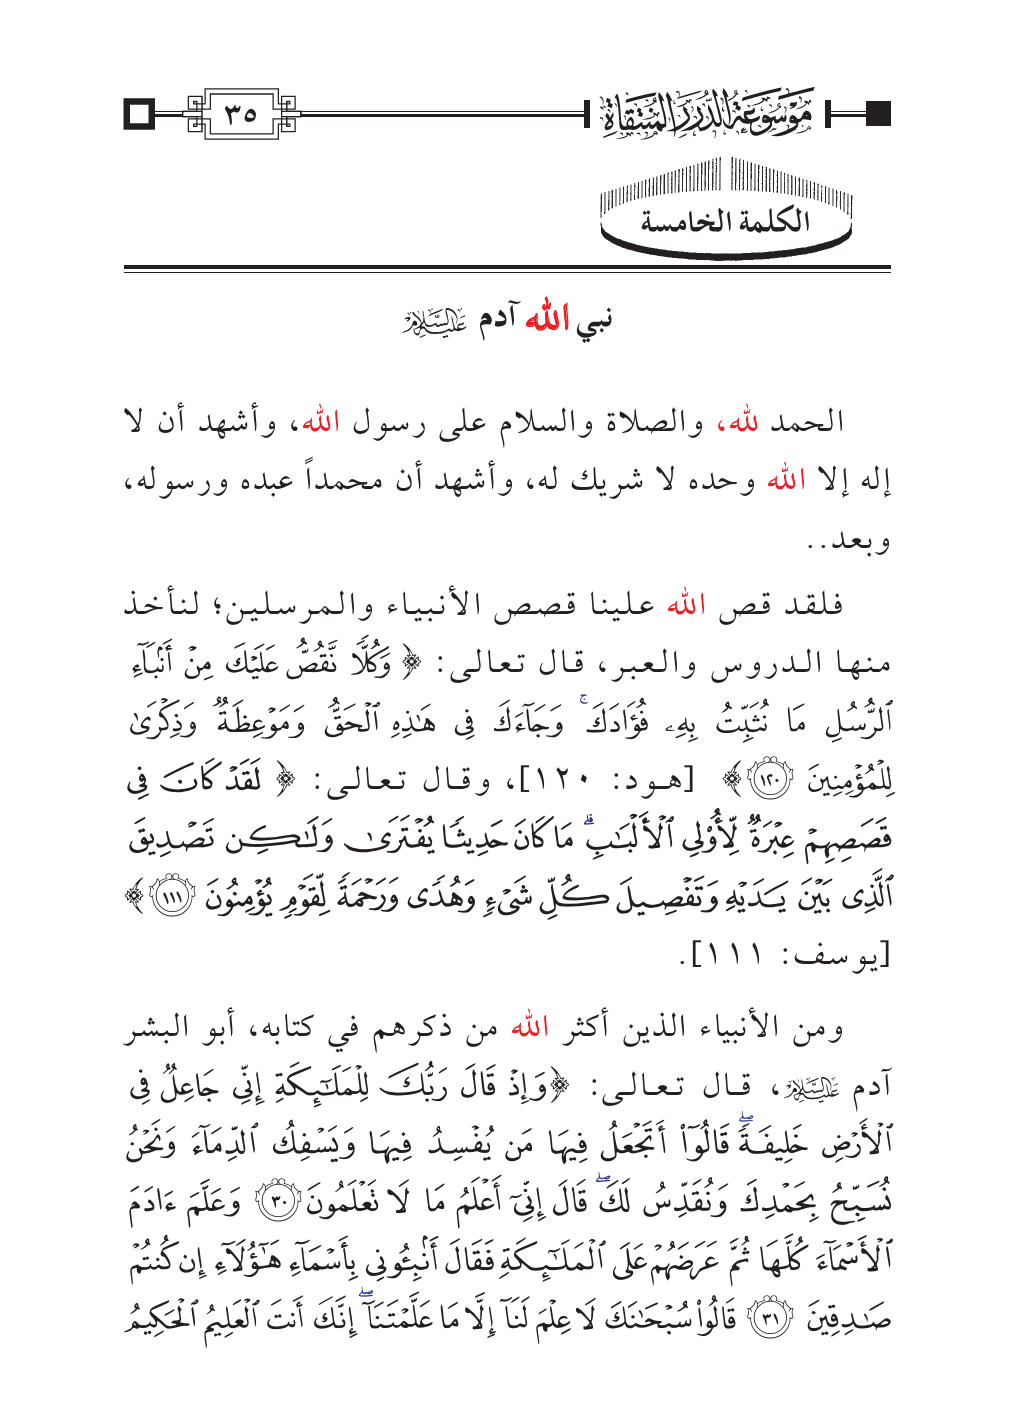 موسوعة الدرر المنتقاة
٣٥
الكلمة الخامسة
نبي الله آدم عليه السلام
الحمد لله، والصلاة والسلام على رسول الله، وأشهد أن لا
إله إلا الله وحده لا شريك له، وأشهد أن محمداً عبده ورسوله،
وبعد..
فلقد قص الله علينا قصص الأنبياء والمرسلين؛ لنأخذ
منها الدروس والعبر، قال تعالى: ﴿وَكُلًّا نَّقُصُّ عَلَيْكَ مِنْ أَنۢبَآءِ
ٱلرُّسُلِ مَا نُثَبِّتُ بِهِۦ فُؤَادَكَ ۚ وَجَآءَكَ فِى هَـٰذِهِ ٱلْحَقُّ وَمَوْعِظَةٌ وَذِكْرَىٰ
لِلْمُؤْمِنِينَ ١٢٠﴾ [هود: ١٢٠]، وقال تعالى: ﴿لَقَدْ كَانَ فِى
قَصَصِهِمْ عِبْرَةٌ لِّأُو۟لِى ٱلْأَلْبَـٰبِ ۗ مَا كَانَ حَدِيثًا يُفْتَرَىٰ وَلَـٰكِن تَصْدِيقَ
ٱلَّذِى بَيْنَ يَدَيْهِ وَتَفْصِيلَ كُلِّ شَىْءٍ وَهُدًى وَرَحْمَةً لِّقَوْمٍ يُؤْمِنُونَ ١١١﴾
[يوسف: ١١١].
ومن الأنبياء الذين أكثر الله من ذكرهم في كتابه، أبو البشر
آدم عليه السلام، قال تعالى: ﴿وَإِذْ قَالَ رَبُّكَ لِلْمَلَـٰٓئِكَةِ إِنِّى جَاعِلٌ فِى
ٱلْأَرْضِ خَلِيفَةً ۖ قَالُوٓا۟ أَتَجْعَلُ فِيهَا مَن يُفْسِدُ فِيهَا وَيَسْفِكُ ٱلدِّمَآءَ وَنَحْنُ
نُسَبِّحُ بِحَمْدِكَ وَنُقَدِّسُ لَكَ ۖ قَالَ إِنِّىٓ أَعْلَمُ مَا لَا تَعْلَمُونَ ٣٠ وَعَلَّمَ ءَادَمَ
ٱلْأَسْمَآءَ كُلَّهَا ثُمَّ عَرَضَهُمْ عَلَى ٱلْمَلَـٰٓئِكَةِ فَقَالَ أَنۢبِـُٔونِى بِأَسْمَآءِ هَـٰٓؤُلَآءِ إِن كُنتُمْ
صَـٰدِقِينَ ٣١ قَالُوا۟ سُبْحَـٰنَكَ لَا عِلْمَ لَنَآ إِلَّا مَا عَلَّمْتَنَآ ۖ إِنَّكَ أَنتَ ٱلْعَلِيمُ ٱلْحَكِيمُ